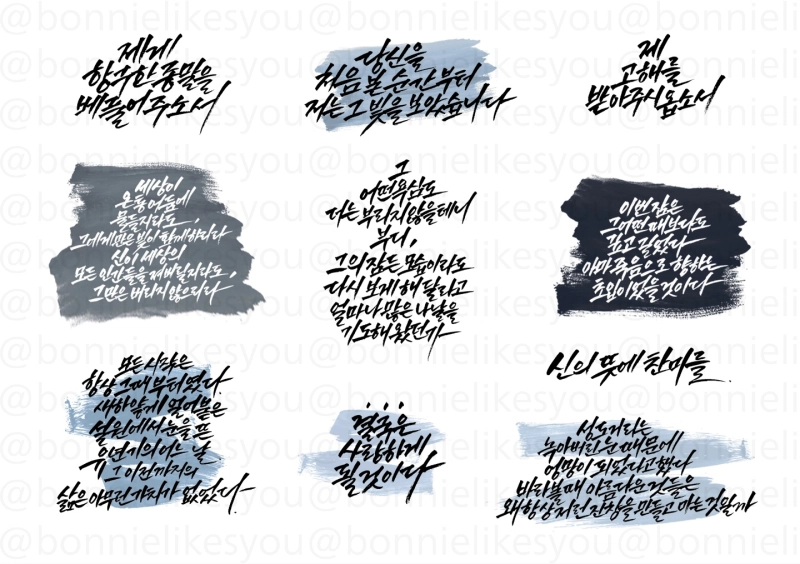 @bonnielikesyou@bonnielikesyou@bonnieli
제게
향구한 종말을
베풀어주소서
당신을
처음 본 순간부터
저는 그 빛을 보았습니다
제
고해를
받아주시옵소서
세상이
온통 어둠에
물들지라도,
그에게만은 빛이 함께하리라
신이 세상의
모든 인간들을 져버릴지라도,
그만은 버리지 않으리라
그
어떤 욕심도
다는 부리지 않을테니
부디,
그의 잠든 모습이라도
다시 보게 해 달라고
얼마나 많은 나날을
기도해 왔던가
이번 잠은
그 어떤 때보다도
깊고 길었다
아마 죽음으로 향하는
초입이었을 것이다
모든 시작은
항상 그때부터였다
새하얗게 얼어붙은
설원에서 눈을 뜬
유년기의 어느 날
그 이전까지의
삶은 아무런 가치가 없었다
신의 뜻에 찬미를
결국은
사랑하게
될 것이다
성도거리는
녹아버린 눈 때문에
엉망이 되었다고 했다
바라볼 때 아름다운 것들은
왜 항상 저런 잔상을 만들고 마는 것일까